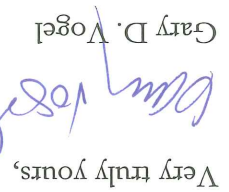 Very truly yours,
Gary Vogel
Gary D. Vogel